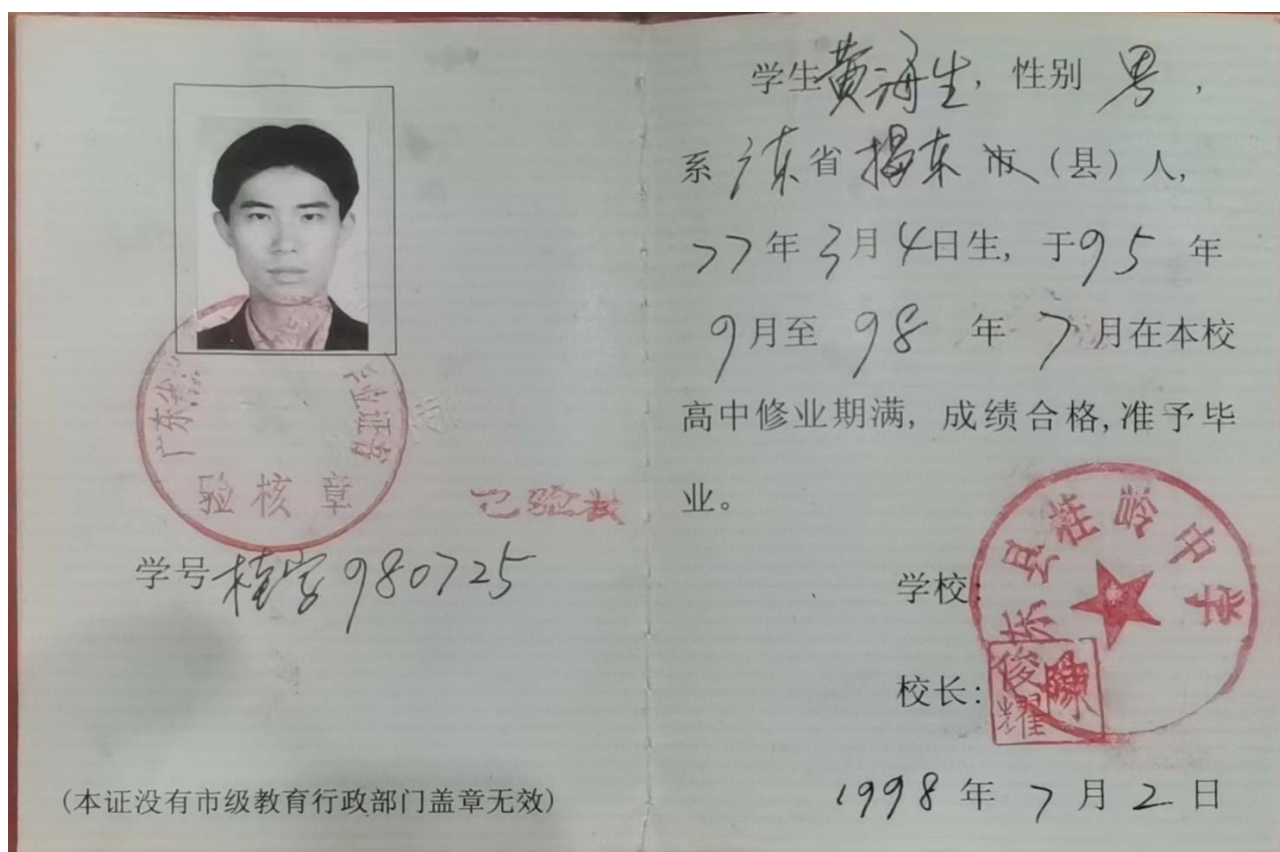 验核章
已验核
学号桂字980725
(本证没有市级教育行政部门盖章无效)
学生黄海生，性别 男，
系广东省揭东市(县)人,
77年3月4日生, 于95年
9月至98年7月在本校
高中修业期满, 成绩合格,准予毕
业。
学校:
东县桂岭中学
校长:
陈俊耀
1998年7月2日